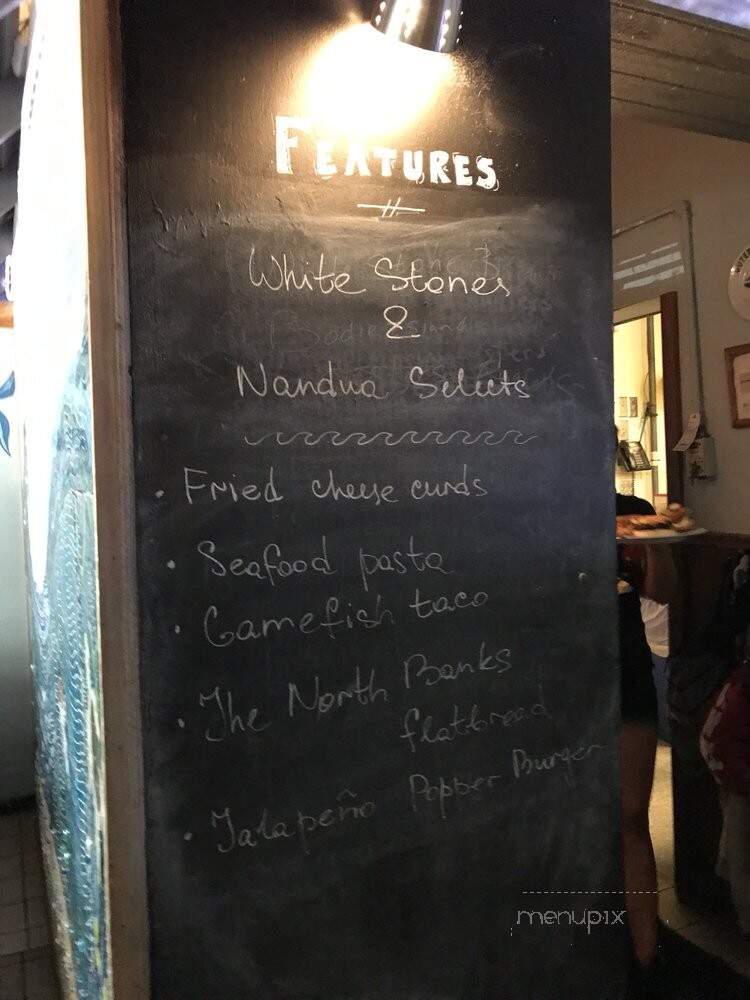 FEATURES
White Stones
&
Nandua Selects
• Fried cheese curds
• Seafood pasta
• Gamefish taco
• The North Banks
flatbread
• Jalapeño Popper Burger
menupix